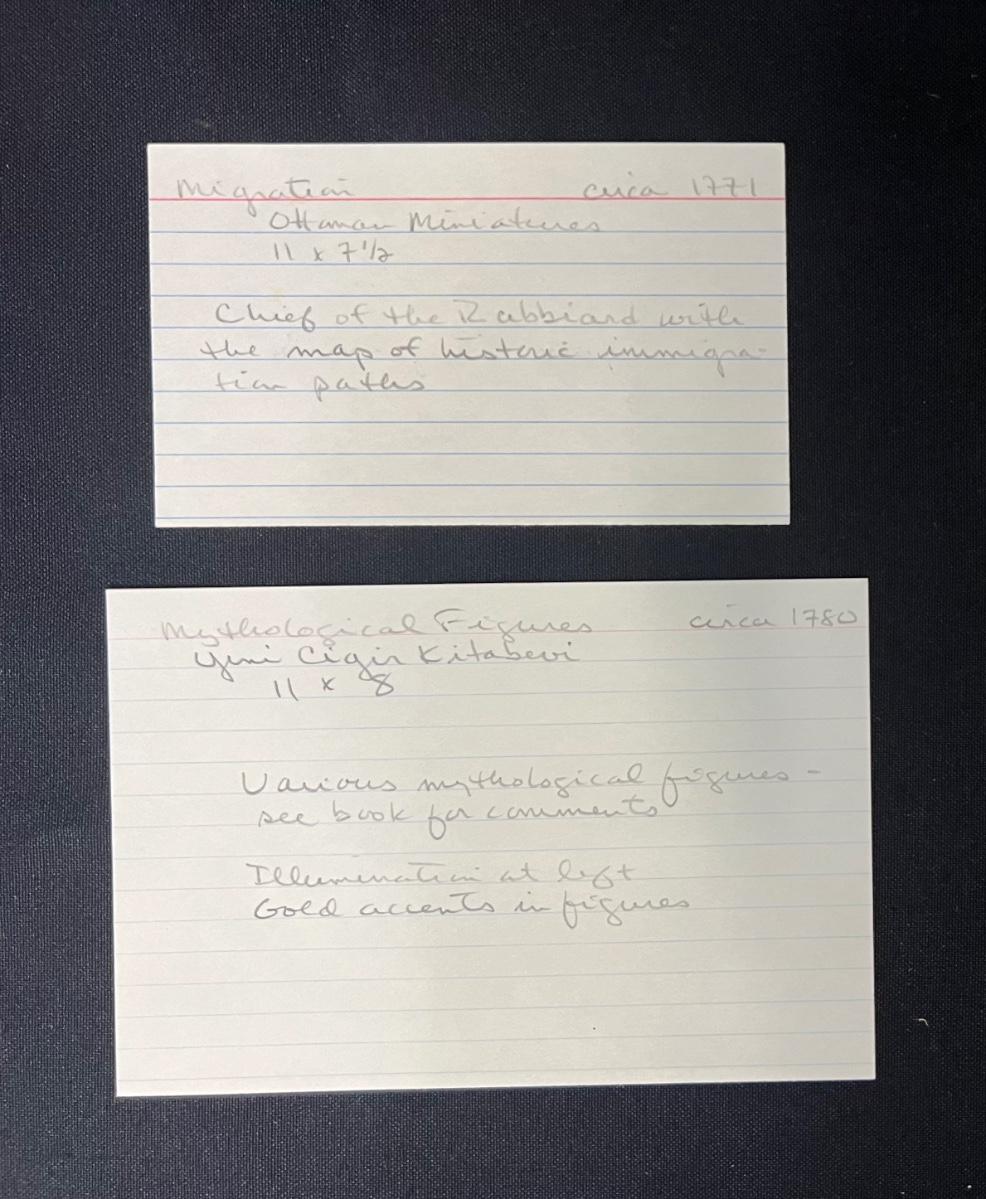 Migration circa 1771
Ottoman Miniatures
11 x 7 1/2
Chief of the Rabbiard with
the map of historic immigra-
tion paths
Mythological Figures circa 1780
Yeni Cigir Kitabevi
11 x 8
Various mythological figures -
see book for comments
Illumination at left
Gold accents in figures